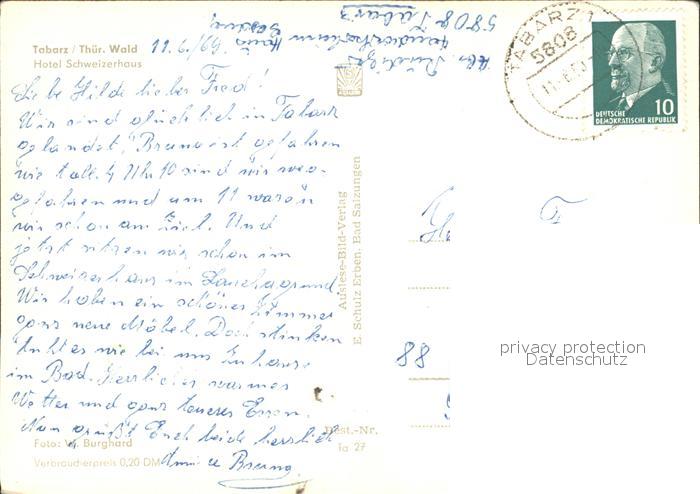 Tabarz / Thür. Wald 11.6./69.
Hotel Schweizerhaus
Liebe Hilde lieber Fred!
Wir sind glücklich in Tabarz
gelandet, Bruno ist gefahren
wie toll. ½ Uhr 10 sind wir weg-
gefahren und um 11 waren
wir schon am Ziel. Und
jetzt sitzen wir schon im
Schweizerhaus im Lauchagrund
Wir haben ein schönes Zimmer
ganz neue Möbel. Doch stinken
tut es wie bei uns zu hause
im Bad. Herrliches warmes
Wetter und ganz teueres Essen.
Nun grüßt Euch beide herzlich
Bruno
Foto: W. Burghard
Verbraucherpreis 0,20 DM
Haus
580g Tabarz
Auslese-Bild-Verlag
E. Schulz Erben, Bad Salzungen
Best.-Nr.
Ta 27
TABARZ 1
5808
DEUTSCHE
DEMOKRATISCHE REPUBLIK
10
88
privacy protection
Datenschutz